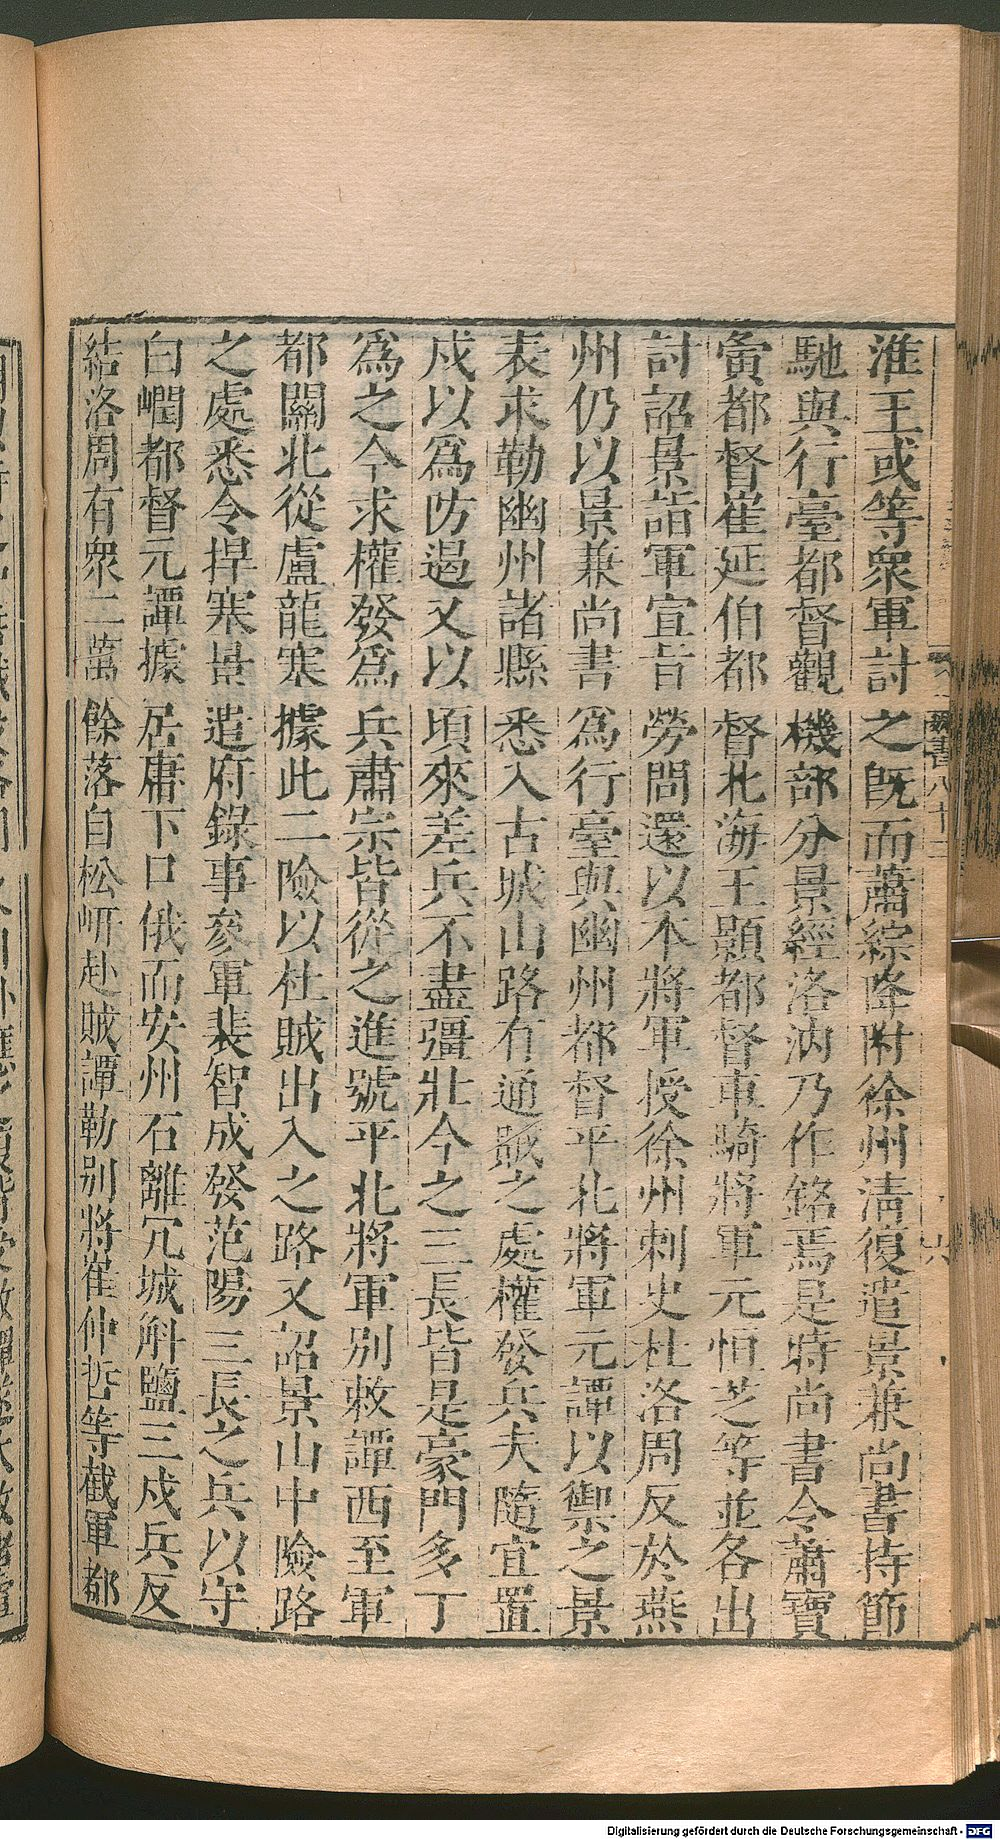 淮王或等衆軍討之旣而蕭綜降附徐州清復遣景兼尚書持節
馳與行臺都督觀機部分景經洛汭乃作銘焉是時尚書令蕭寶
夤都督崔延伯都督北海王顥都督車騎將軍元恒芝等並各出
討詔景詣軍宣旨勞問還以本將軍授徐州刺史杜洛周反於燕
州仍以景兼尚書爲行臺與幽州都督平北將軍元譚以禦之景
表求勒幽州諸縣悉入古城山路有通賊之處權發兵夫隨宜置
戍以爲防遏又以頃來差兵不盡彊壯今之三長皆是豪門多丁
爲之今求權發爲兵肅宗皆從之進號平北將軍別敕譚西至軍
都關北從盧龍塞據此二險以杜賊出入之路又詔景山中險路
之處悉令捍塞景遣府錄事參軍裴智成發范陽三長之兵以守
白㵎都督元譚據居庸下口俄而安州石離冗城斛鹽三戍兵反
結洛周有衆二萬餘落自松岍赴賊譚勒別將崔仲哲等截軍都
魏書八十二
六
Digitalisierung gefördert durch die Deutsche Forschungsgemeinschaft - DFG